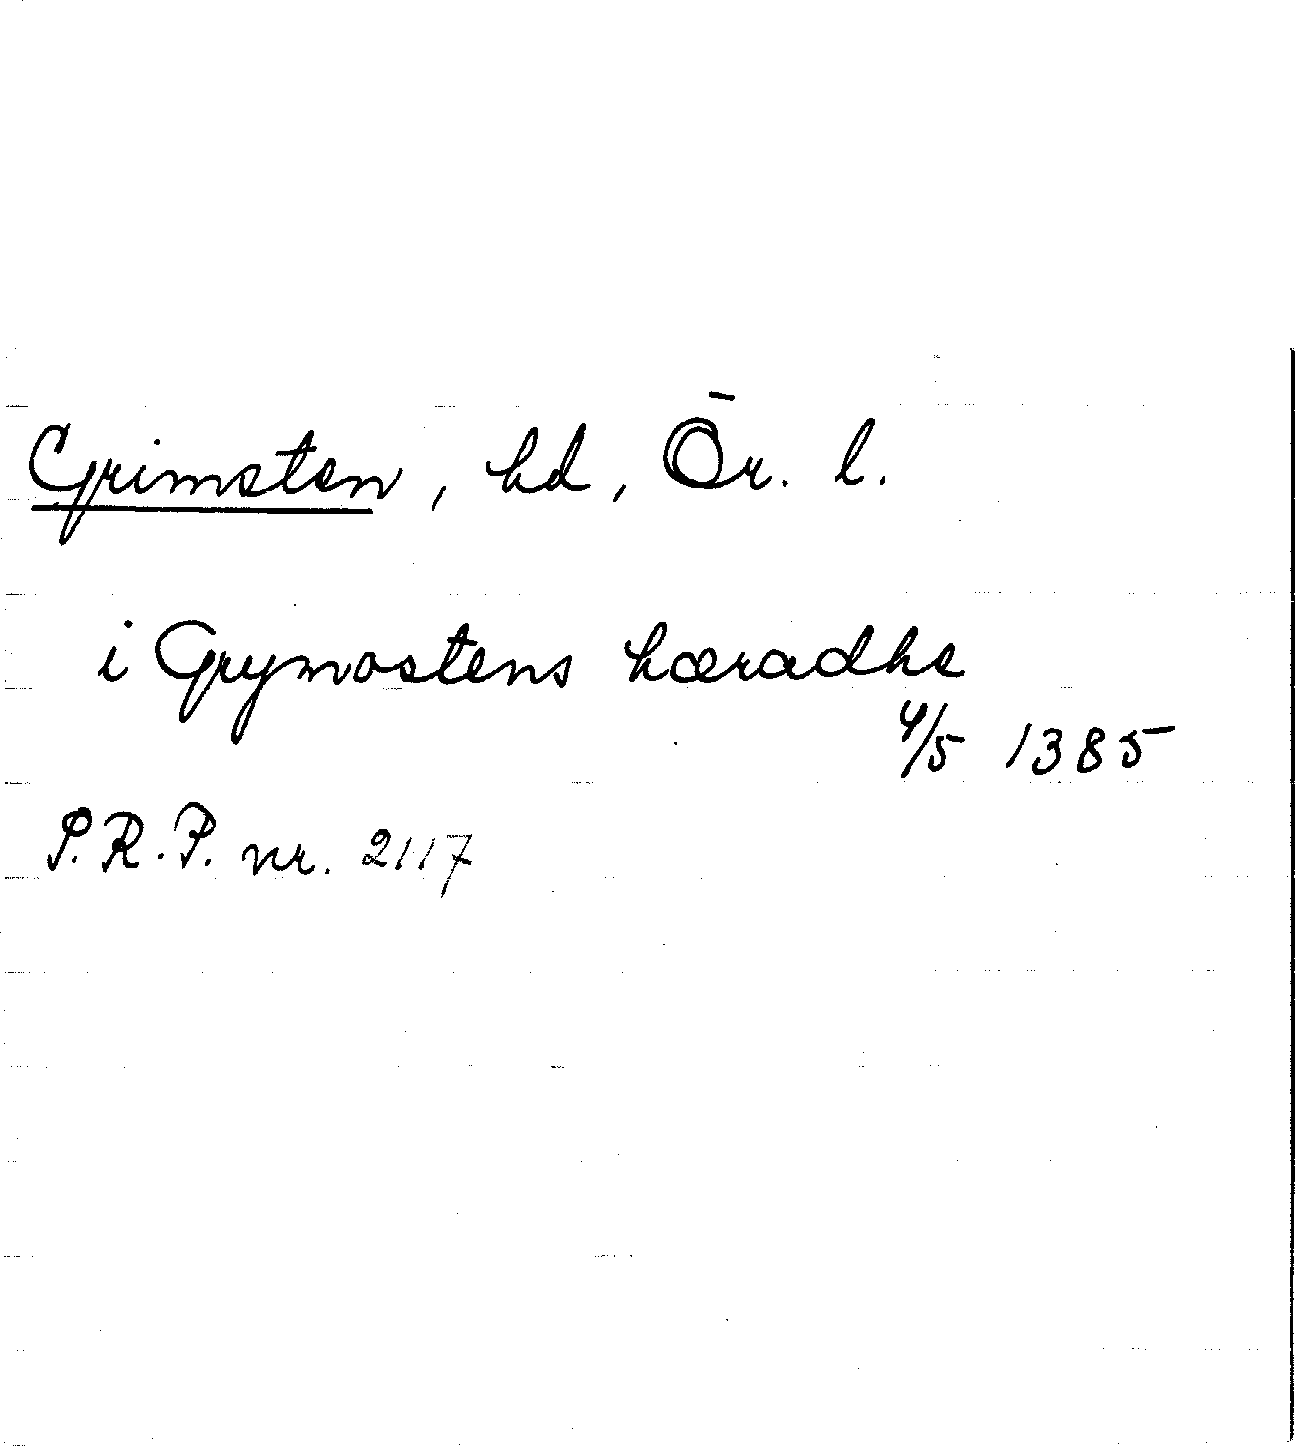 Grimsten, hd, Ör. l.
i Grymostens hæradhe
4/5 1385
P.R.P. nr. 2117